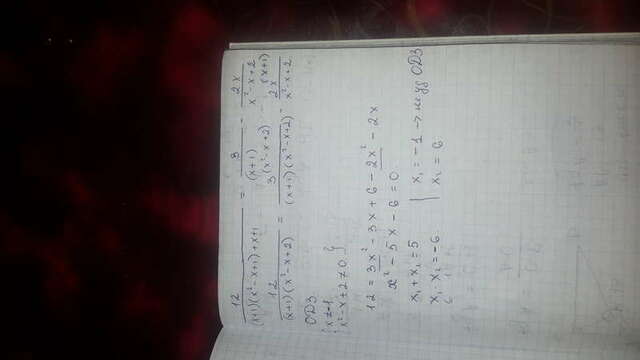 12/((x+1)(x²-x+1)+x+1) = 3/(x+1) - 2x/(x²-x+2)
12/((x+1)(x²-x+2)) = 3(x²-x+2)/((x+1)(x²-x+2)) - 2x (x+1)/(x²-x+2)
ОДЗ
{ x≠-1
x²-x+2≠0 }
12 = 3x² - 3x + 6 - 2x² - 2x
x² - 5x - 6 = 0
x₁+x₂ = 5 | x₁ = -1 → не уд ОДЗ
x₁·x₂ = -6 | x₂ = 6